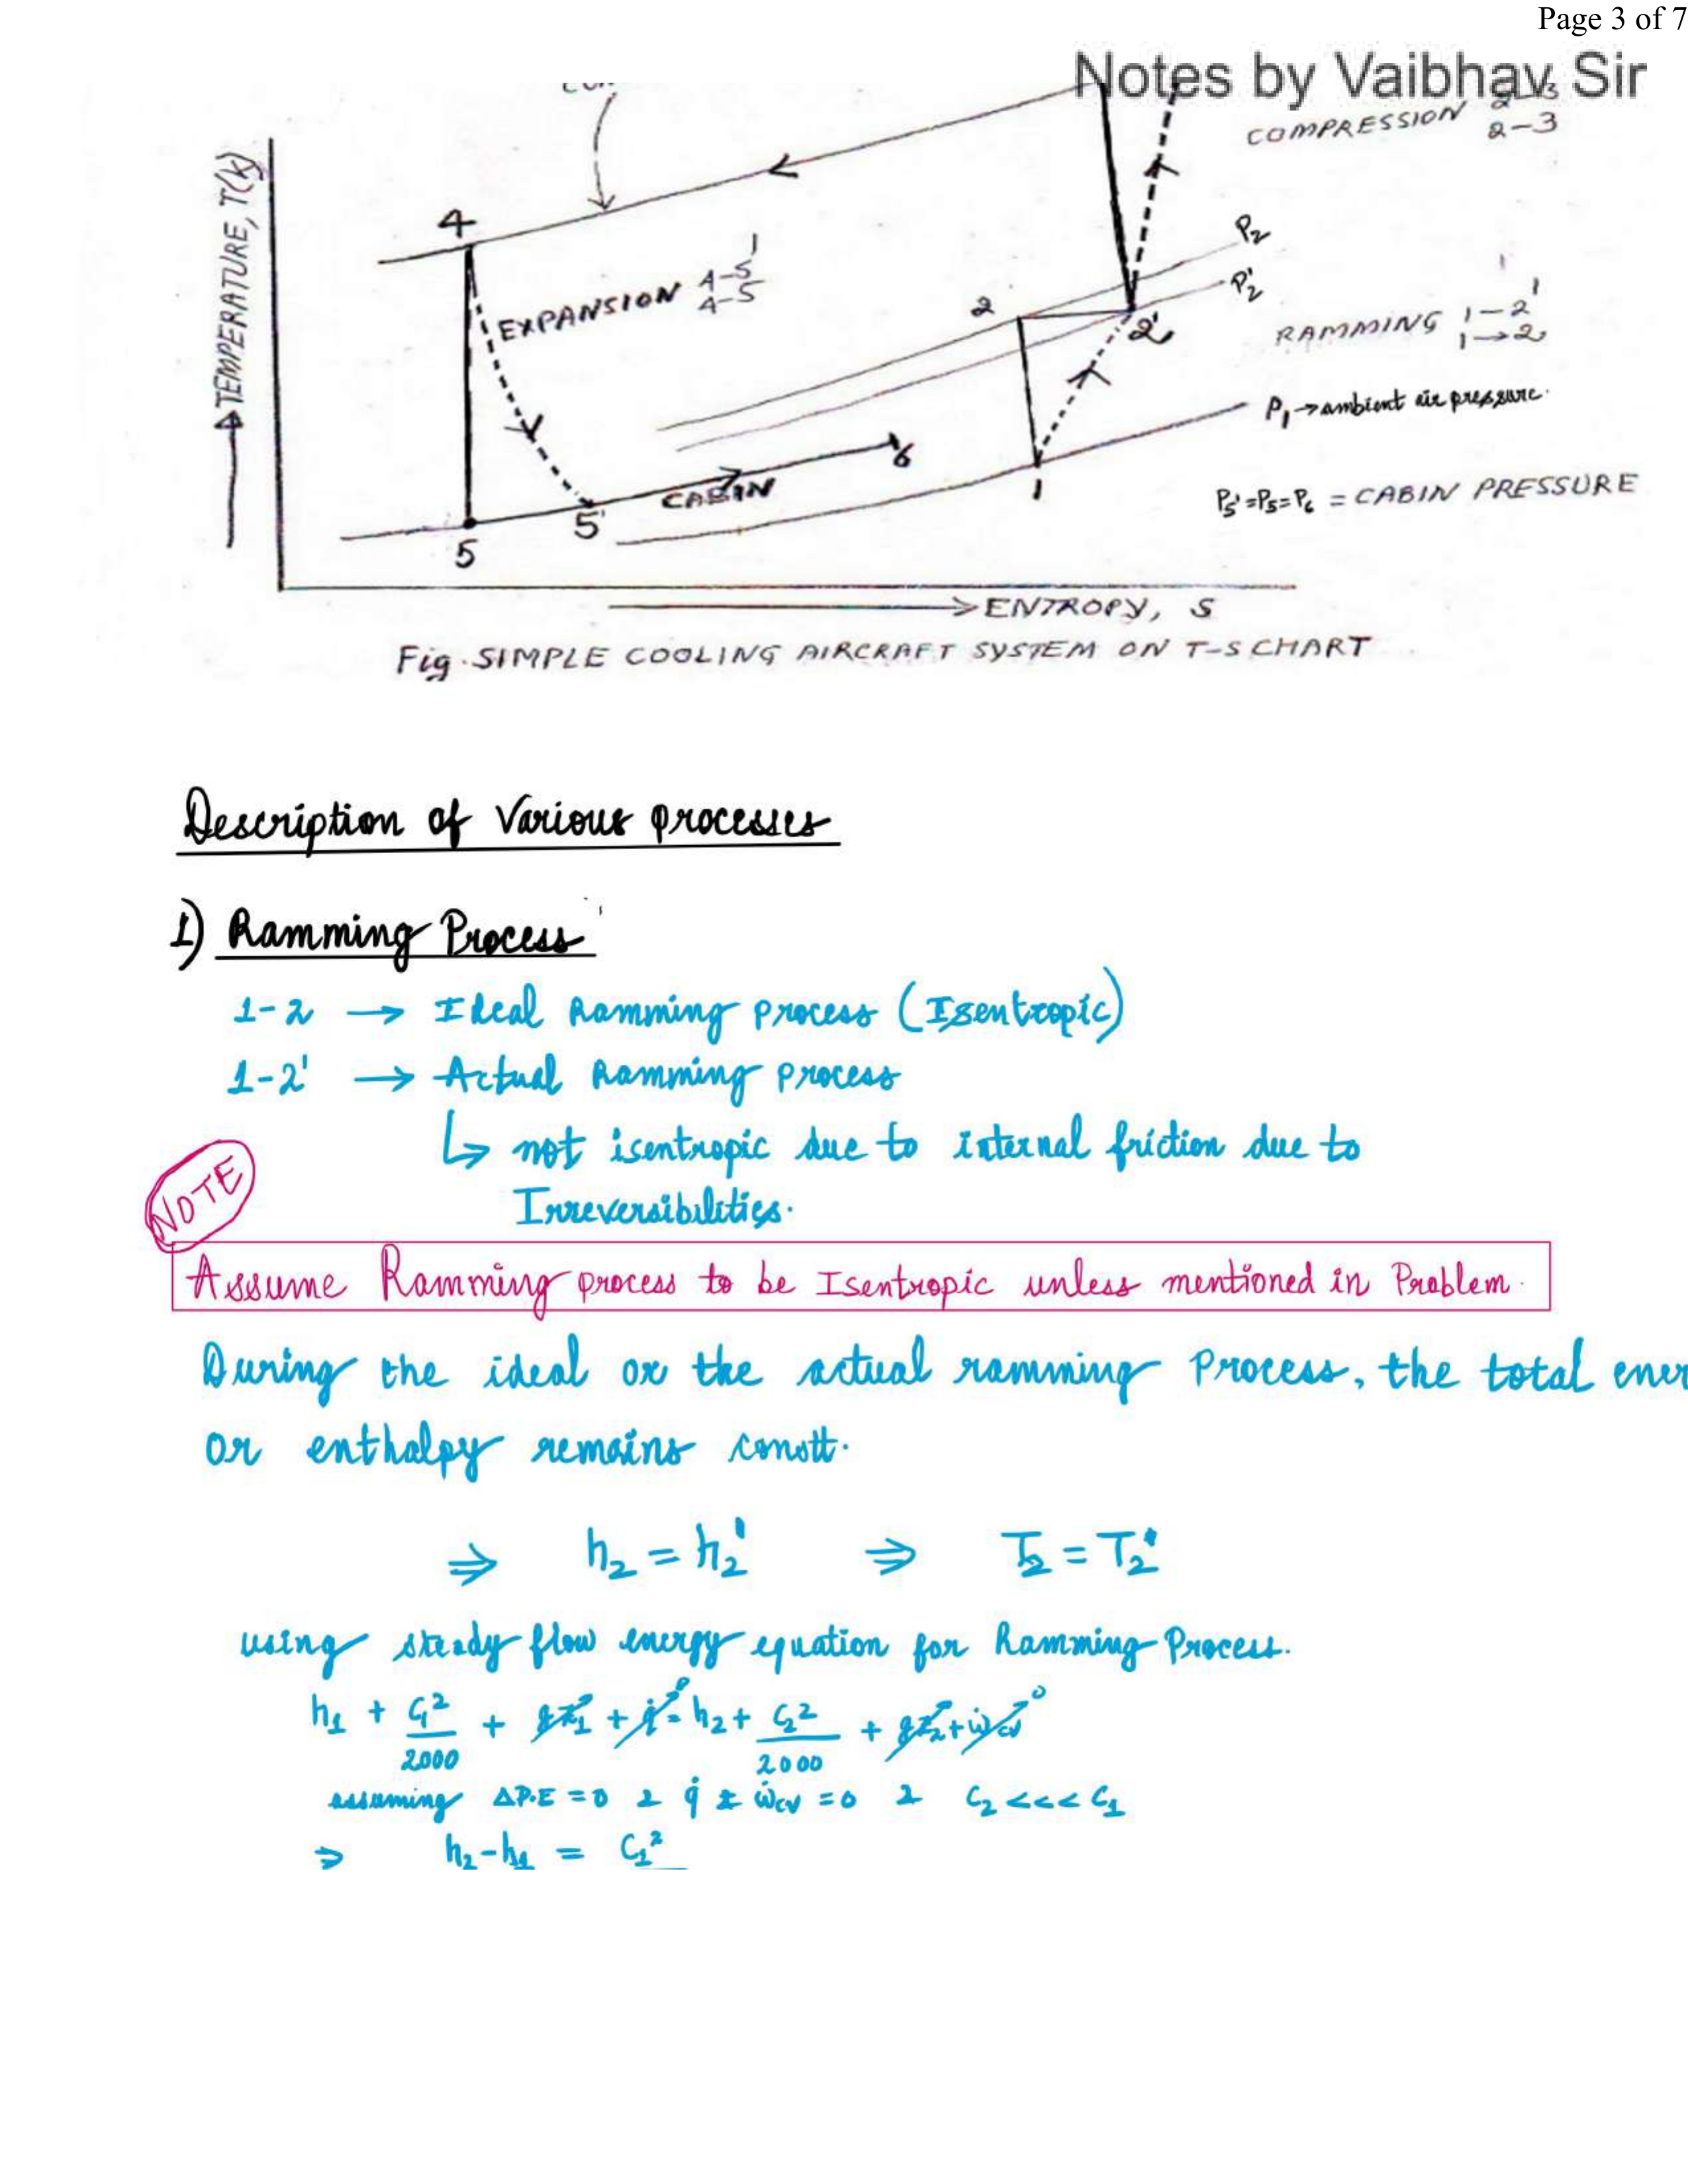 Page 3 of 7
Notes by Vaibhav Sir
COMPRESSION
2-3
TEMPERATURE, T(K)
4
EXPANSION 4-5'
4-5
2
P2
P2'
2'
RAMMING 1-2'
1→2
P1→ambient air pressure.
6
CABIN
1
P5'=P5=P6 = CABIN PRESSURE
5'
5
ENTROPY, S
Fig. SIMPLE COOLING AIRCRAFT SYSTEM ON T-S CHART
Description of Various processes
1) Ramming Process
1-2 → Ideal Ramming process (Isentropic)
1-2' → Actual Ramming process
↳ not isentropic due to internal friction due to
Irreversibilities.
NOTE
Assume Ramming process to be Isentropic unless mentioned in Problem.
During the ideal or the actual ramming Process, the total ener
or enthalpy remains constt.
⇒ h2 = h2' ⇒ T2 = T2'
using steady flow energy equation for Ramming Process.
h1 + C1²/2000 + gz1 + q̇ = h2 + C2²/2000 + gz2 + ẇcv 0
assuming ΔP.E = 0 & q̇ & ẇcv = 0 & C2 <<< C1
⇒ h2-h1 = C1²